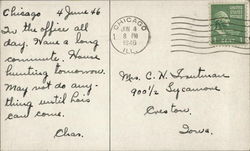 Chicago 4 June 46
In the office all
day. Have a long
commute. House
hunting tomorrow.
May not do any-
thing until hois
can come.
Chas.
CHICAGO
JUN 4
8 PM
1946
ILL.
Mrs. C. H. Troutman
900½ Sycamore
Creston,
Iowa.